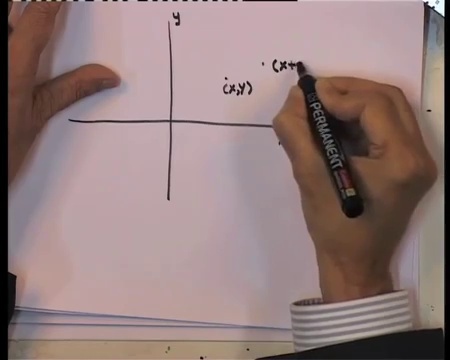 y
(x+
(x,y)
PERMANENT